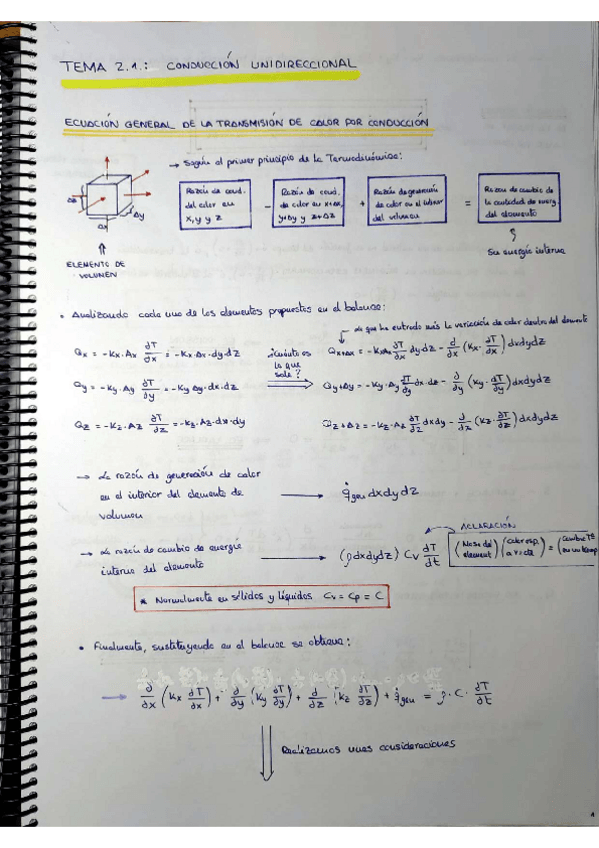 TEMA 2.1.: CONDUCCIÓN UNIDIRECCIONAL
ECUACIÓN GENERAL DE LA TRANSMISIÓN DE CALOR POR CONDUCCIÓN
→ Según el primer principio de la Termodinámica:
Razón de cond. del calor en x, y y z
−
Razón de cond. de calor en x+Δx, y+Δy y z+Δz
+
Razón de generación de calor en el interior del volumen
=
Razón de cambio de la cantidad de energ. del elemento
Δy
ELEMENTO DE VOLUMEN
Su energía interna
• Analizando cada uno de los elementos propuestos en el balance:
lo que ha entrado más la variación de calor dentro del elemento
Qx = -Kx·Ax ∂T/∂x = -Kx·Ax·dy·dz
¿Cuánto es lo que sale?
Qx+Δx = -Kx Ax ∂T/∂x dy dz - ∂/∂x (Kx· ∂T/∂x) dxdydz
Qy = -Ky·Ay ∂T/∂y = -Ky Ay·dx·dz
Qy+Δy = -Ky·Ay ∂T/∂y dx·dz - ∂/∂y (Ky· ∂T/∂y) dxdydz
Qz = -Kz·Az ∂T/∂z = -Kz·Az·dx·dy
Qz+Δz = -Kz·Az ∂T/∂z dxdy - ∂/∂x (Kz· ∂T/∂z) dxdydz
→ La razón de generación de calor en el interior del elemento de volumen
q̇gen dxdydz
→ La razón de cambio de energía interna del elemento
(ρdxdydz) Cv ∂T/∂t
ACLARACIÓN
(Masa del element) (calor esp. a v=cte) = (Cambio Tª en un tiemp
* Normalmente en sólidos y líquidos Cv = Cp = C
• Finalmente, sustituyendo en el balance se obtiene:
→ ∂/∂x (Kx ∂T/∂x) + ∂/∂y (Ky ∂T/∂y) + ∂/∂z (Kz ∂T/∂z) + q̇gen = ρ·C· ∂T/∂t
Realizamos unas consideraciones
1